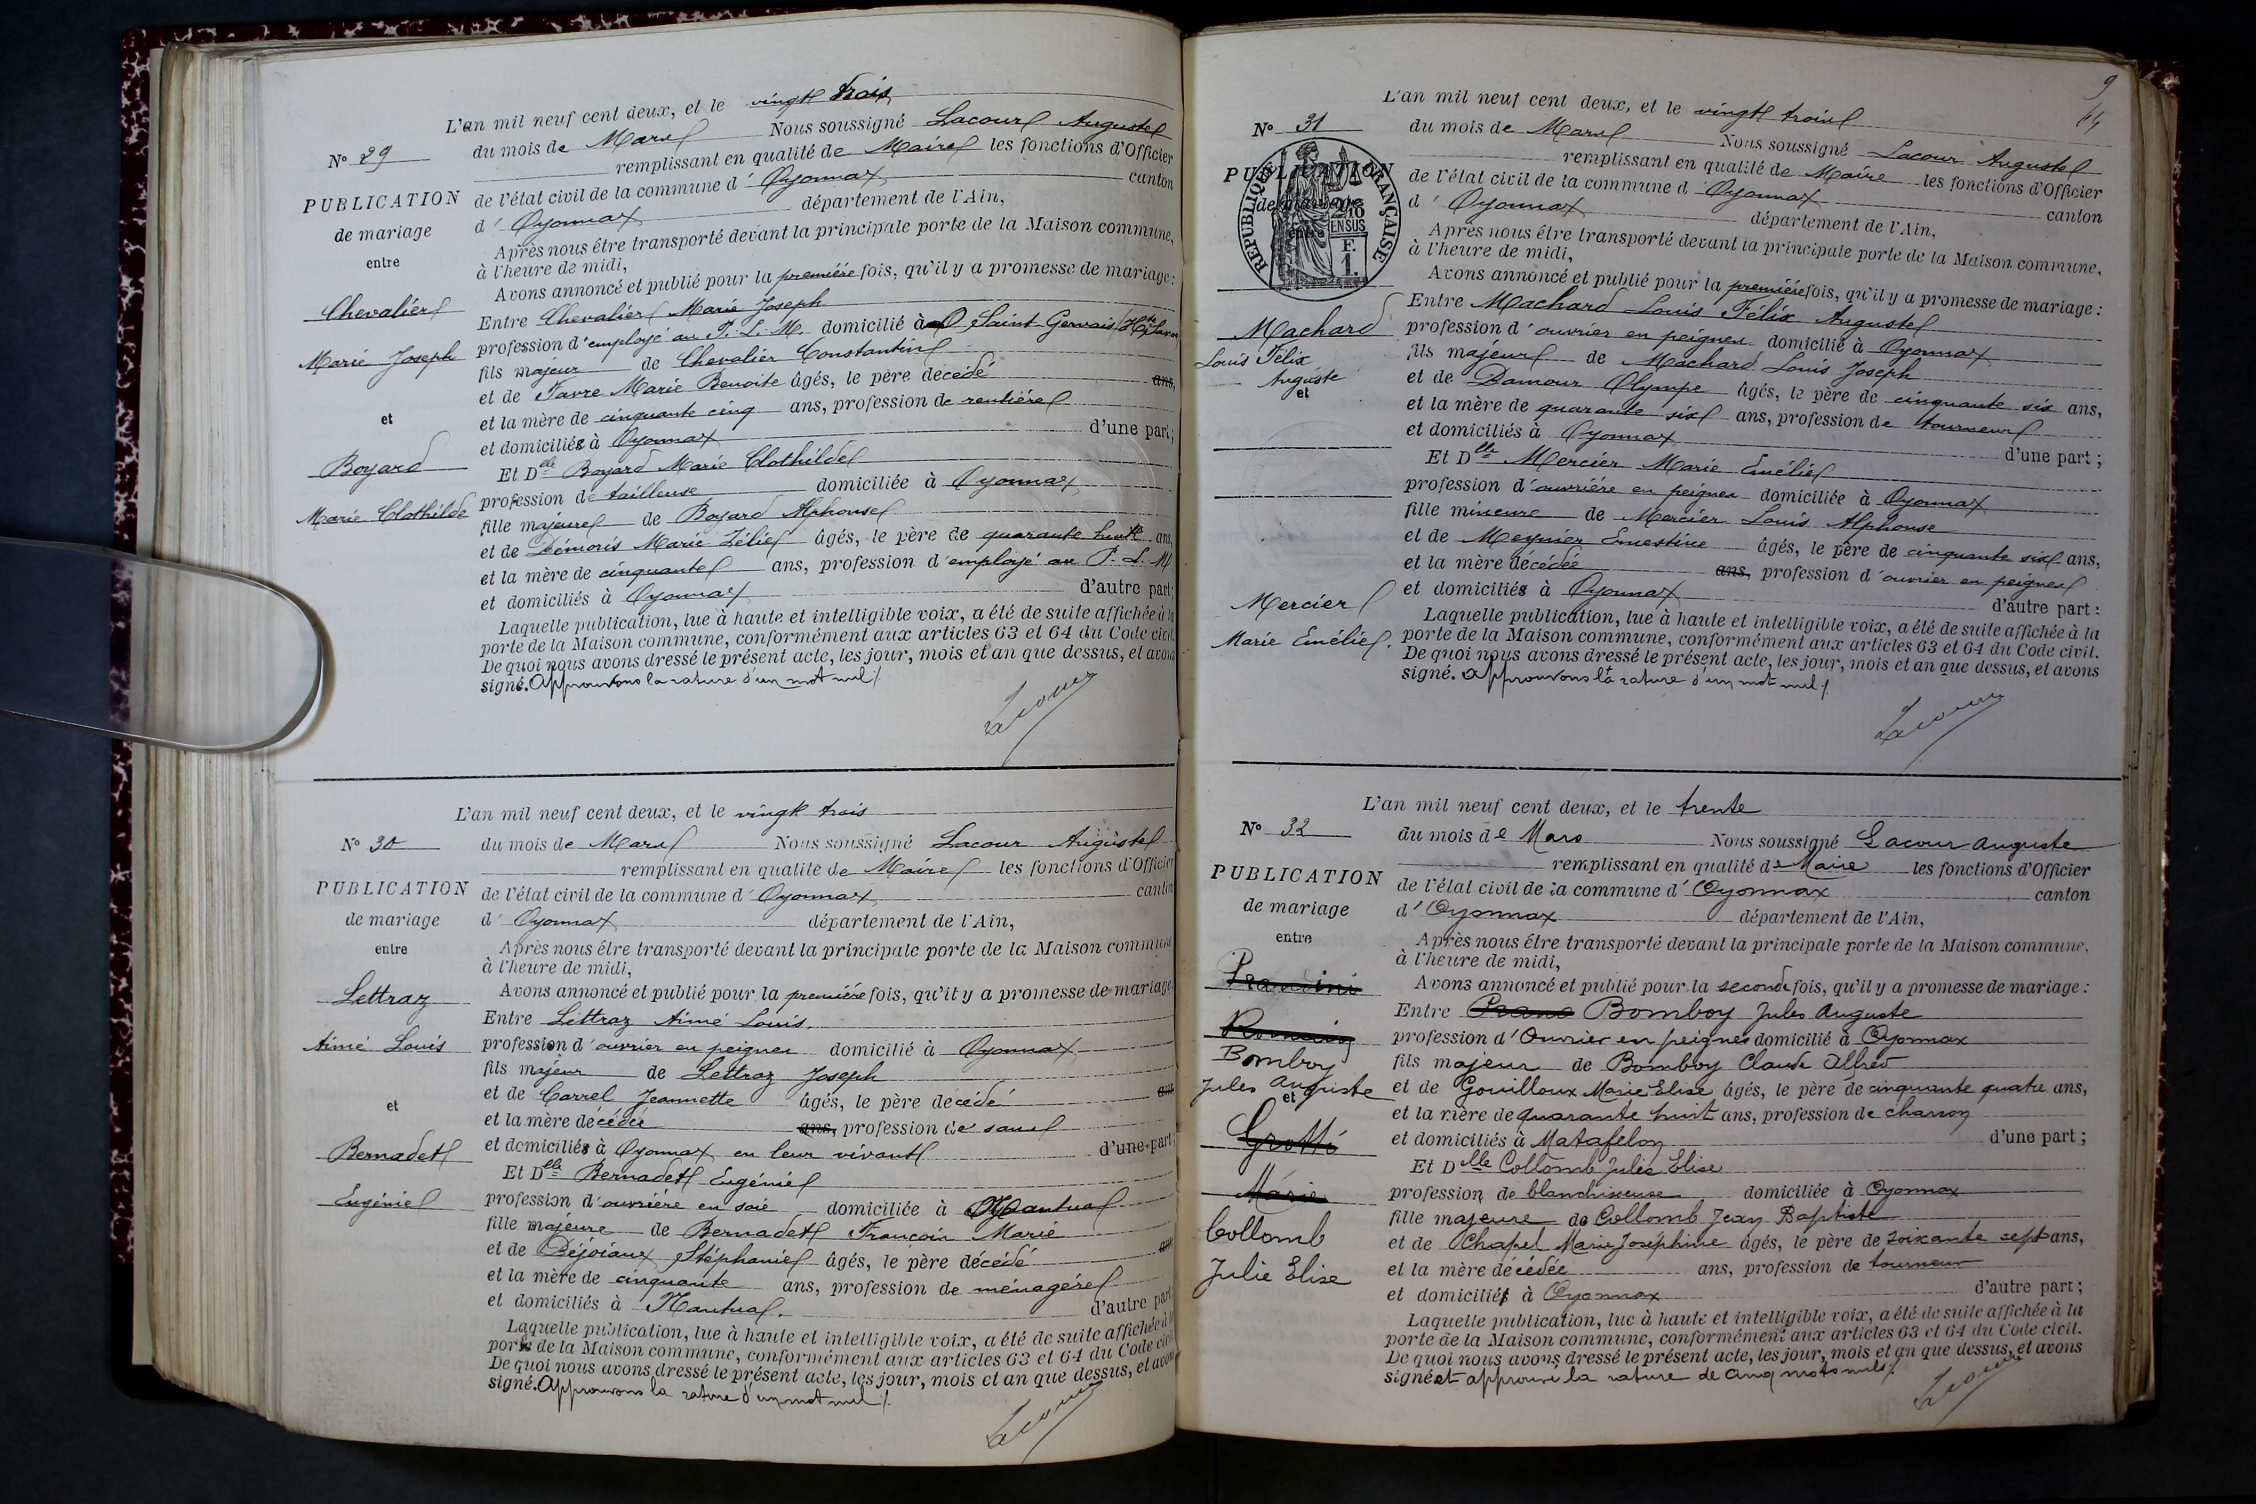 L'an mil neuf cent deux, et le vingt trois
N° 29
du mois de Mars Nous soussigné Lacour Auguste
remplissant en qualité de Maire les fonctions d'Officier
PUBLICATION
de l'état civil de la commune d' Oyonnax canton
de mariage
d' Oyonnax département de l'Ain,
entre
Après nous être transporté devant la principale porte de la Maison commune,
à l'heure de midi,
Avons annoncé et publié pour la première fois, qu'il y a promesse de mariage :
Chevalier
Entre Chevalier Marie Joseph
profession d'employé au P. L. M. domicilié à Saint Gervais
Marie Joseph
fils majeur de Chevalier Constantin
et de Favre Marie Benoite âgés, le père décédé ans,
et la mère de cinquante cinq ans, profession de rentière
et
et domiciliés à Oyonnax d'une part ;
Boyard
Et Dlle Boyard Marie Clothilde
profession de tailleuse domiciliée à Oyonnax
Marie Clothilde
fille majeure de Boyard Alphonse
et de Démoris Marie Zélie âgés, le père de quarante huit ans,
et la mère de cinquante ans, profession d'employé au P. L. M
et domiciliés à Oyonnax d'autre part ;
Laquelle publication, lue à haute et intelligible voix, a été de suite affichée à la
porte de la Maison commune, conformément aux articles 63 et 64 du Code civil.
De quoi nous avons dressé le présent acte, les jour, mois et an que dessus, et avons
signé. Approuvons la rature d'un mot nul /.
Lacour
L'an mil neuf cent deux, et le vingt trois
N° 30
du mois de Mars Nous soussigné Lacour Auguste
remplissant en qualité de Maire les fonctions d'Officier
PUBLICATION
de l'état civil de la commune d' Oyonnax canton
de mariage
d' Oyonnax département de l'Ain,
entre
Après nous être transporté devant la principale porte de la Maison commune
à l'heure de midi,
Avons annoncé et publié pour la première fois, qu'il y a promesse de mariage
Lettraz
Entre Lettraz Aimé Louis.
Aimé Louis
profession d'ouvrier en peignes domicilié à Oyonnax
fils majeur de Lettraz Joseph
et de Carrel Jeannette âgés, le père décédé ans
et
et la mère décédée ans, profession de sans
et domiciliés à Oyonnax en leur vivant d'une part
Bernadet
Et Dlle Bernadet Eugénie
Eugénie
profession d'ouvrière en soie domiciliée à Nantua
fille majeure de Bernadet François Marie
et de Déjoiaux Stéphanie âgés, le père décédé ans
et la mère de cinquante ans, profession de ménagère
et domiciliés à Nantua. d'autre part
Laquelle publication, lue à haute et intelligible voix, a été de suite affichée à la
porte de la Maison commune, conformément aux articles 63 et 64 du Code civil
De quoi nous avons dressé le présent acte, les jour, mois et an que dessus, et avons
signé. Approuvons la rature d'un mot nul /.
Lacour
9
L'an mil neuf cent deux, et le vingt trois
N° 31
du mois de Mars Nous soussigné Lacour Auguste
remplissant en qualité de Maire les fonctions d'Officier
PUBLICATION
de l'état civil de la commune d' Oyonnax canton
de mariage
d' Oyonnax département de l'Ain,
entre
RÉPUBLIQUE FRANÇAISE
2/10
EN SUS
F.
1.
Après nous être transporté devant la principale porte de la Maison commune,
à l'heure de midi,
Avons annoncé et publié pour la première fois, qu'il y a promesse de mariage :
Machard
Entre Machard Louis Félix Auguste
profession d'ouvrier en peignes domicilié à Oyonnax
Louis Félix
fils majeur de Machard Louis Joseph
Auguste
et de Damour Olympe âgés, le père de cinquante six ans,
et
et la mère de quarante six ans, profession de tourneur
et domiciliés à Oyonnax d'une part ;
Et Dlle Mercier Marie Emélie
profession d'ouvrière en peignes domiciliée à Oyonnax
fille mineure de Mercier Louis Alphonse
et de Meynier Ernestine âgés, le père de cinquante six ans,
et la mère décédée ans, profession d'ouvrier en peignes
Mercier
et domiciliés à Oyonnax d'autre part :
Marie Emélie.
Laquelle publication, lue à haute et intelligible voix, a été de suite affichée à la
porte de la Maison commune, conformément aux articles 63 et 64 du Code civil.
De quoi nous avons dressé le présent acte, les jour, mois et an que dessus, et avons
signé. Approuvons la rature d'un mot nul /.
Lacour
L'an mil neuf cent deux, et le trente
N° 32
du mois de Mars Nous soussigné Lacour Auguste
remplissant en qualité de Maire les fonctions d'Officier
PUBLICATION
de l'état civil de la commune d' Oyonnax canton
de mariage
d' Oyonnax département de l'Ain,
entre
Après nous être transporté devant la principale porte de la Maison commune,
à l'heure de midi,
Avons annoncé et publié pour la seconde fois, qu'il y a promesse de mariage :
Entre Bomboy Jules Auguste
profession d'Ouvrier en peignes domicilié à Oyonnax
Bomboy
fils majeur de Bomboy Claude Alfred
Jules Auguste
et de Gouilloux Marie Elise âgés, le père de cinquante quatre ans,
et
et la mère de quarante huit ans, profession de charron
Grotti
et domiciliés à Matafelon d'une part ;
Et Dlle Collomb Julie Elise
Marie
profession de blanchisseuse domiciliée à Oyonnax
Collomb
fille majeure de Collomb Jean Baptiste
et de Chapel Marie Joséphine âgés, le père de soixante sept ans,
Julie Elise
et la mère décédée ans, profession de tourneur
et domiciliés à Oyonnax d'autre part ;
Laquelle publication, lue à haute et intelligible voix, a été de suite affichée à la
porte de la Maison commune, conformément aux articles 63 et 64 du Code civil.
De quoi nous avons dressé le présent acte, les jour, mois et an que dessus, et avons
signé et approuvé la rature de cinq mots nuls /.
Lacour